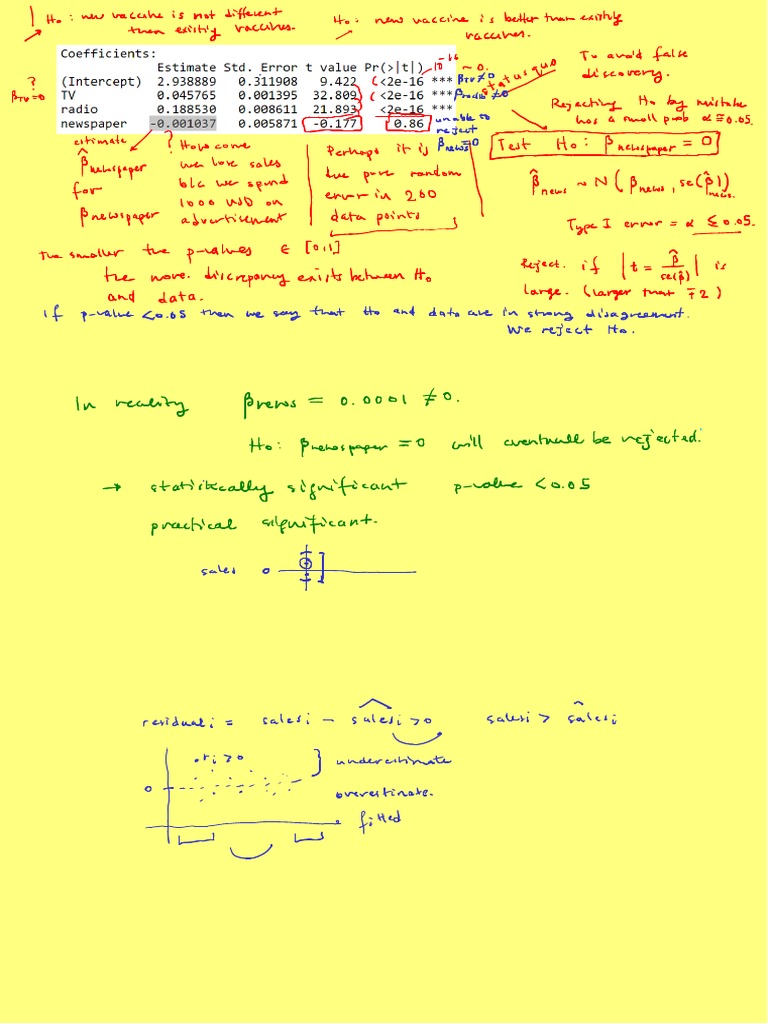 Ho: new vaccine is not different
than existiy vaccines.
Ho: new vaccine is better than existiy
vaccines.
Coefficients:
Estimate Std. Error t value Pr(>|t|)
(Intercept) 2.938889 0.311908 9.422 <2e-16 ***
TV 0.045765 0.001395 32.809 <2e-16 ***
radio 0.188530 0.008611 21.893 <2e-16 ***
newspaper -0.001037 0.005871 -0.177 0.86
?
βTV=0
10^-16 ~ 0.
βTV≠0
βradio≠0
unable to
reject
βnews=0
status quo
To avoid false
discovery.
Rejecting Ho by mistake
has a small prob α≅0.05.
Test Ho: βnewspaper = 0
β̂news ~ N(βnews, se(β̂)news.)
Type I error = α ≤ 0.05.
Reject. if |t = β̂/se(β̂)| is
large. (larger than ∓2)
estimate
β̂newspaper
for
βnewspaper
? How come
we lose sales
b/c we spend
1000 USD on
advertisement
Perhaps it is
due pure random
error in 200
data points
The smaller the p-values ∈ [0,1]
the more discrepancy exists between Ho
and data.
if p-value <0.05 then we say that Ho and data are in strong disagreement.
We reject Ho.
In reality βnews = 0.0001 ≠ 0.
Ho: βnewspaper = 0 will eventuall be rejected.
→ statistically significant p-value < 0.05
practical significant.
sales 0
residuali = salesi − ŝalesi > 0 salesi > ŝalesi
ri > 0
underestimate
0
overestimate.
fitted